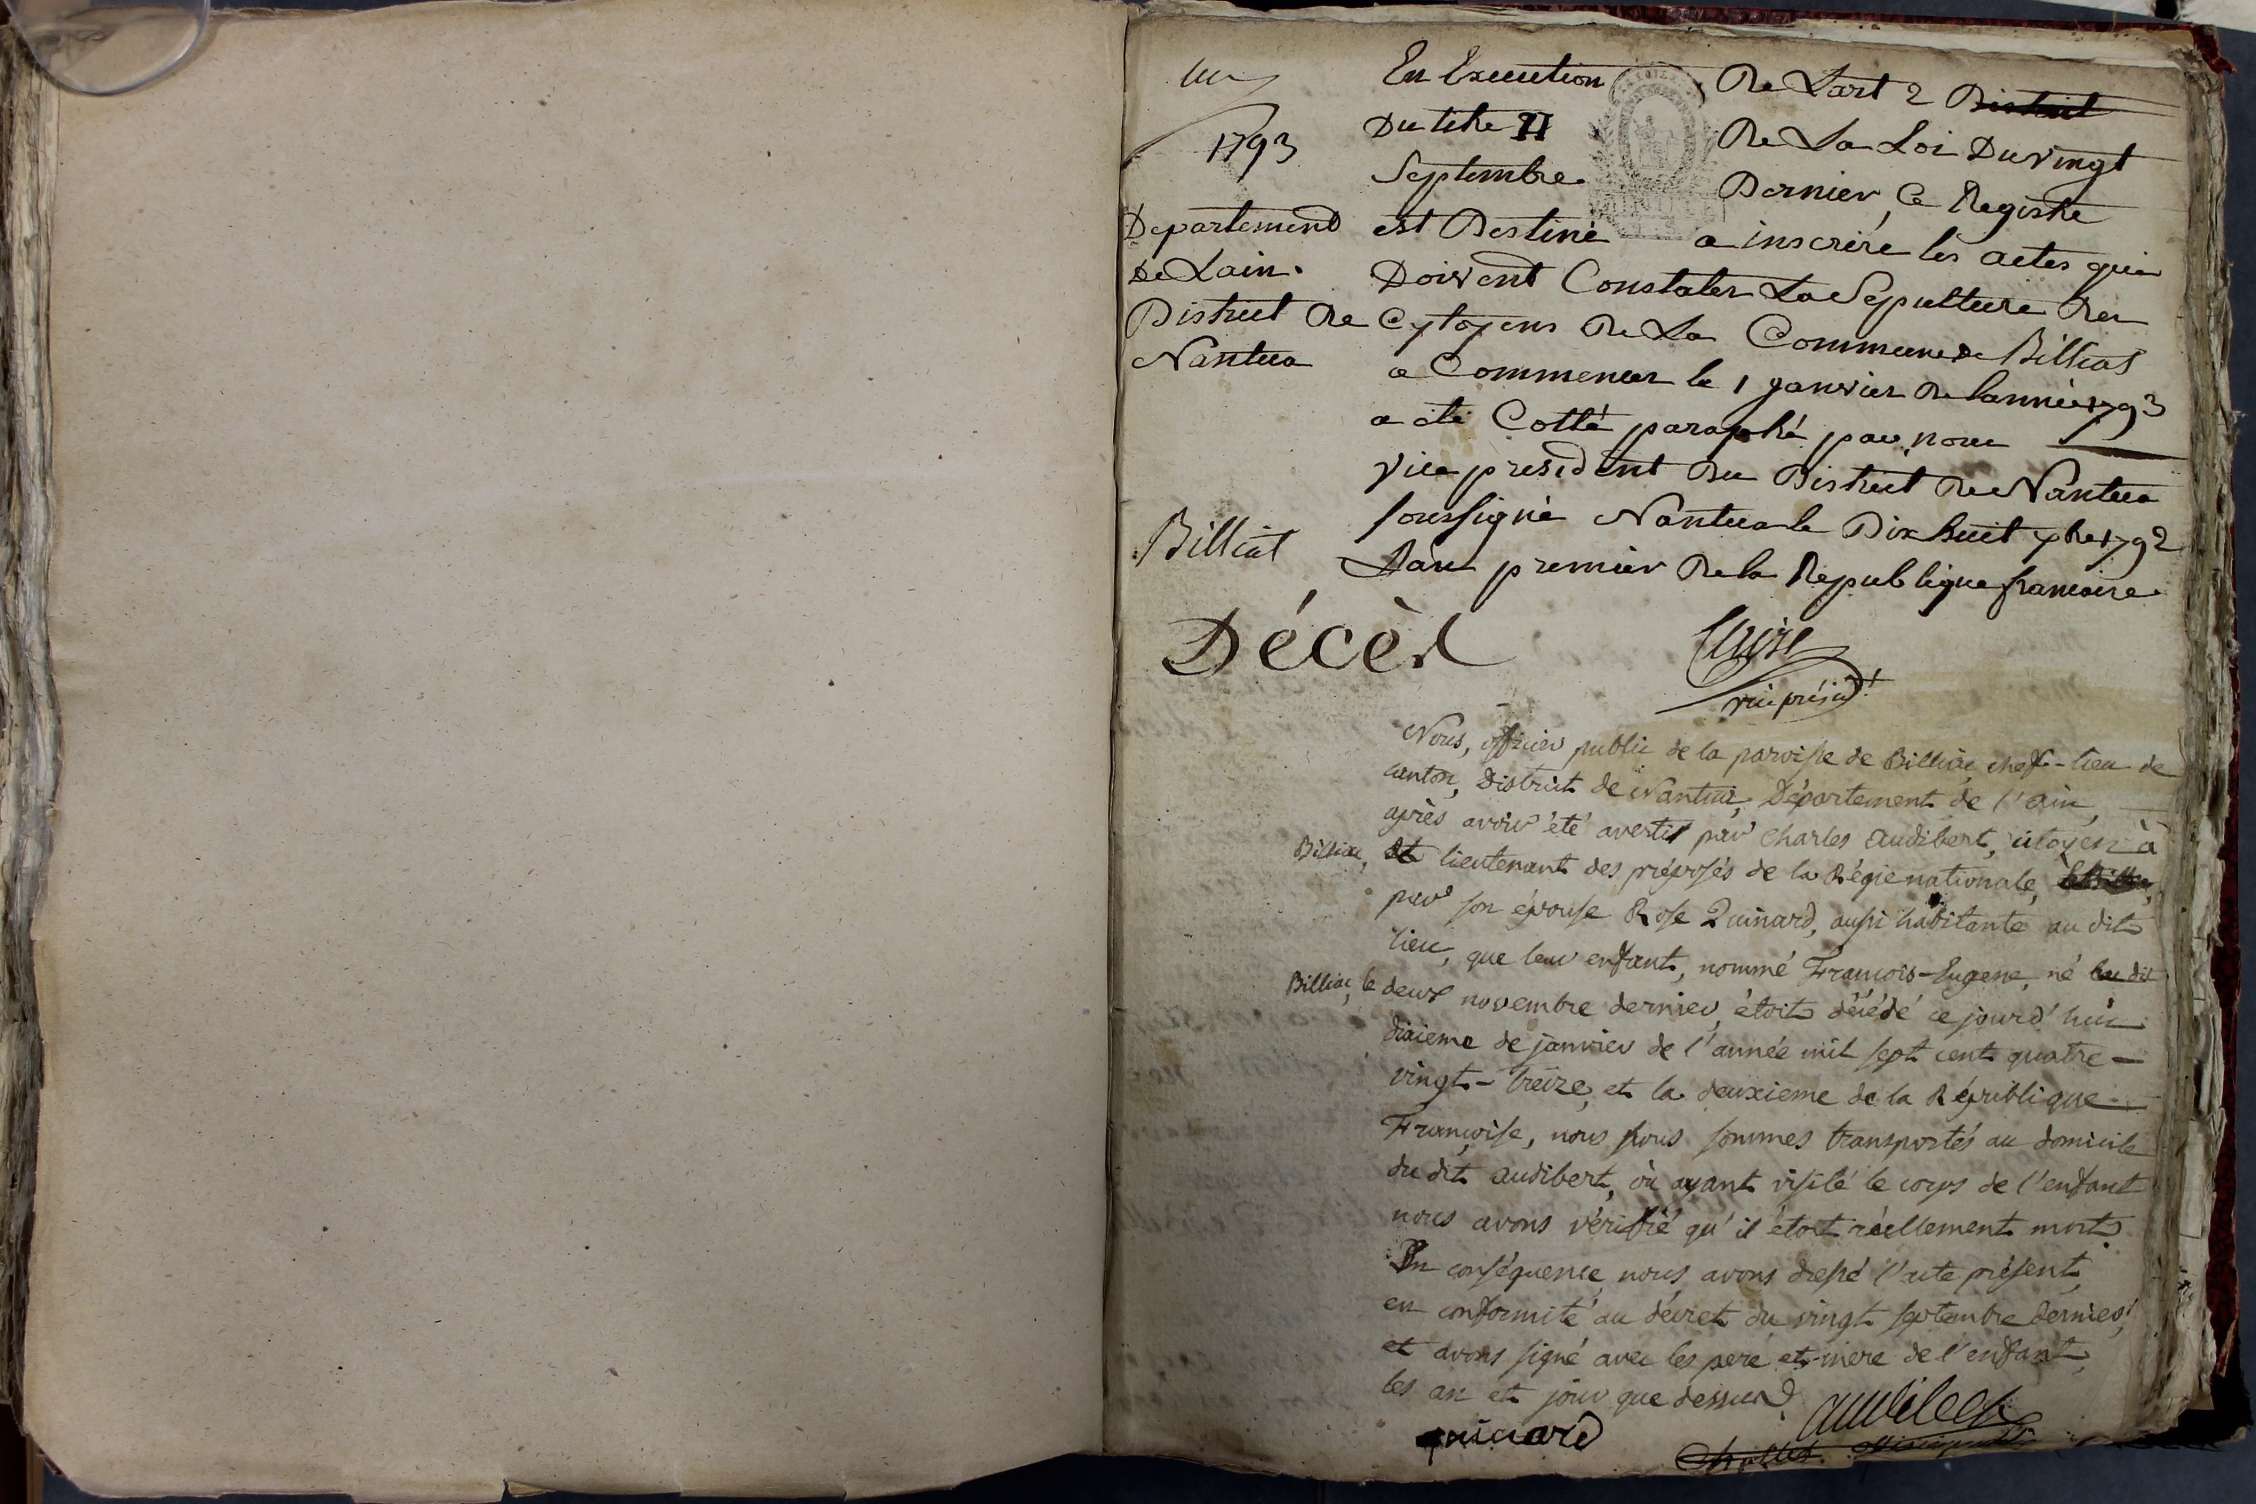 un
1793
Departement
De Lain.
District De
Nantua
Billiat
En Execution De Lart 2 District
Du titre II De La Loi Du vingt
Septembre Dernier, Ce Registre
est Destiné a inscrire les actes qui
Doivent Constater La Sepulture Des
Cytoyens De La Commune de Billiat
a Commencer le 1 janvier De lannée 1793
a été Cotté paraphé par nous
vice president Du District De Nantua
soussigné Nantua le Dix huit xbre 1792
Lan premier De la Republique francoise
Décès
vice présidt
Nous, officier public de la paroisse de Billiac, chef-lieu de
canton, District de Nantua, Département de l'ain,
après avoir été avertis par charles audibert, citoyen à
Billiac, et lieutenant des préposés de la Régie nationale,
par son épouse Rose Quinard, aussi habitante au dit
lieu, que leur enfant, nommé François-Eugene, né au dit
Billiac, le deux novembre dernier, étoit décédé ce jourd'hui
dixieme de janvier de l'année mil sept cent quatre-
vingt-treize, et la deuxieme de la République
Françoise, nous nous sommes transportés au domicile
du dit audibert, où ayant visité le corps de l'enfant
nous avons vérifié qu'il étoit réellement mort.
En conséquence, nous avons dressé l'acte présent,
en conformité au décret du vingt septembre dernier,
et avons signé avec les pere et mere de l'enfant,
les an et jour que dessus
audibert
quinard